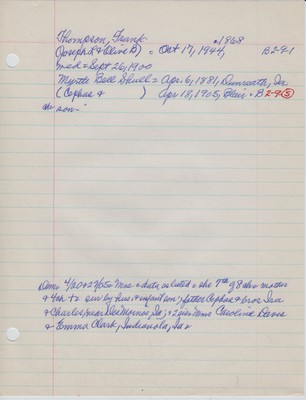 Thompson, Frank = 1868
(Joseph L & Olive B) = Oct 17, 1944, B2-9-1
med = Sept 26, 1900
Myrtle Bell Shull = Apr. 6, 1881, Dunreath, Ia
(Cephas & ) Apr 18, 1905, Blair = B2-9(5)
son =
Dem 4/20 & 27/05 = Mrs = data as listed = she 7th of 8 & mother
& 4ch & surv by hus & infant son; father Cephas & bros Ira
& Charles, near Des Moines, Ia; & 2 sis Mmes Caroline Davis
& Emma Clark, Indianola, Ia =